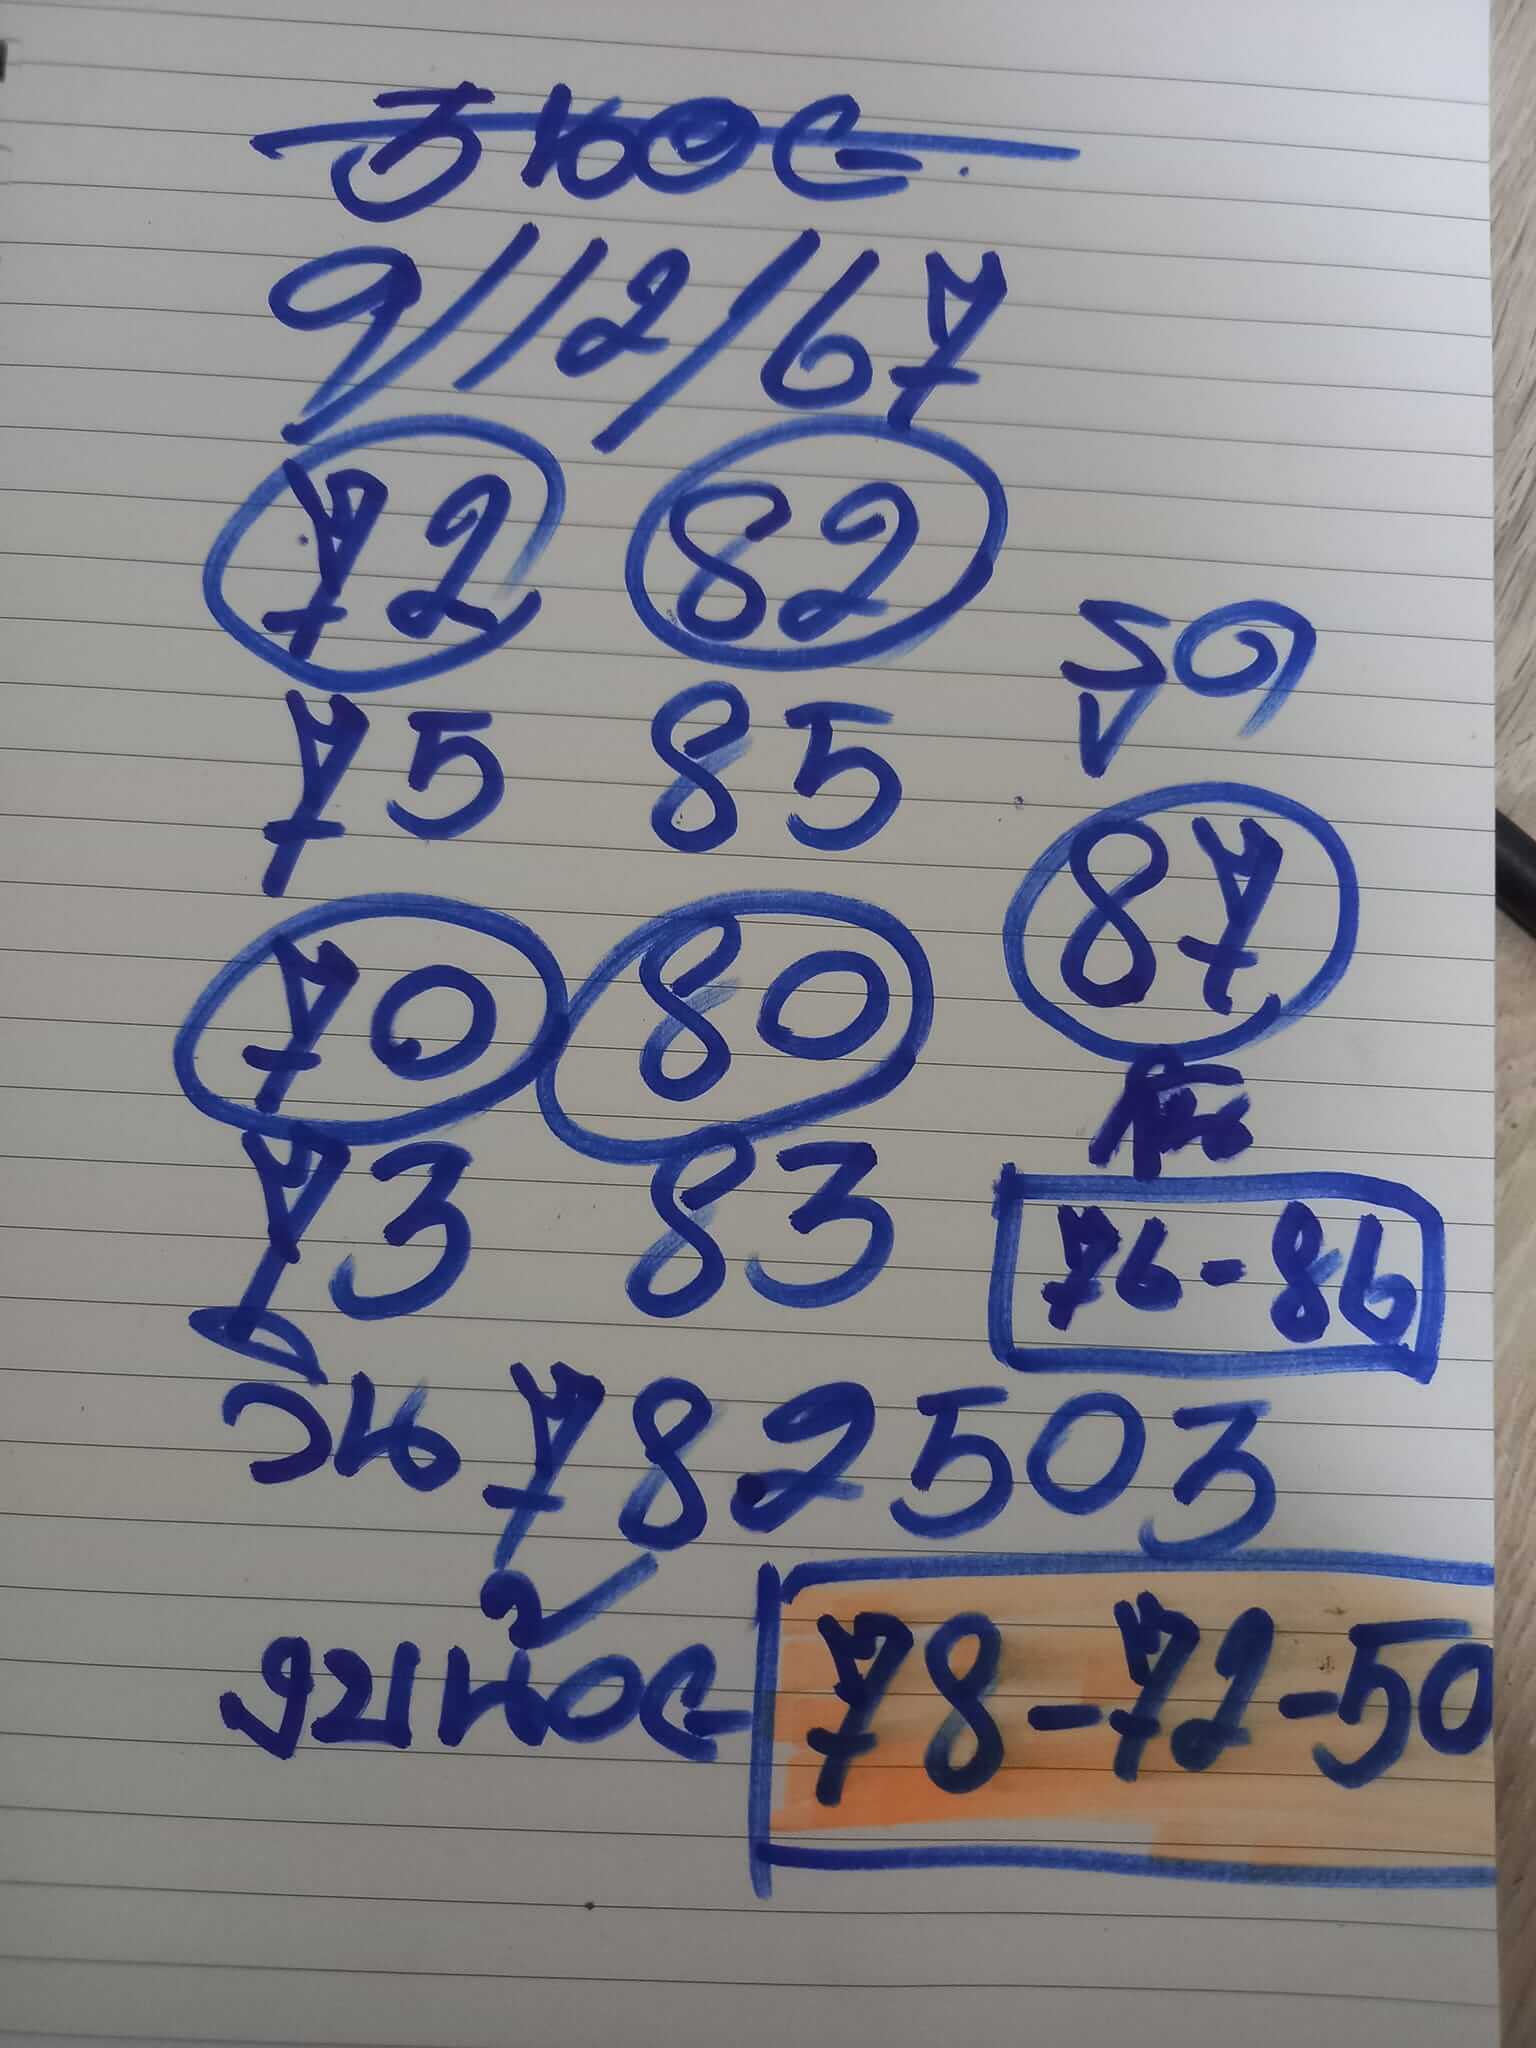 ฮานอย
9/12/67
72 82
75 85
รูด
70 80
87
73 83
กัน
76-86
วิน 782503
งบน้อย 78-72-50